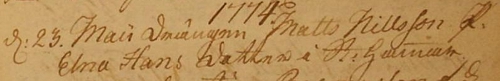 1774
d: 23. Maii Drängen Matts Nillsson P.
Elna Hans Datter i St.